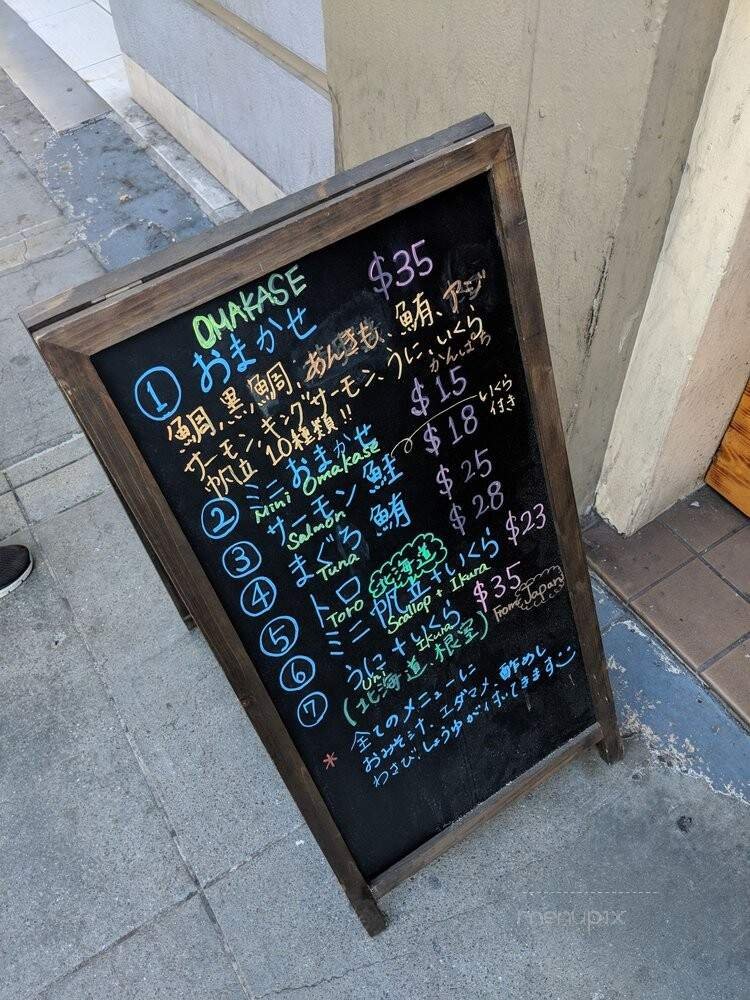 OMAKASE $35
① おまかせ
鯛、黒鯛、あんきも、鮪、アジ
サーモン、キングサーモン、うに、いくら
帆立 10種類!! かんぱち
② ミニおまかせ $15
Mini Omakase
いくら付き
③ サーモン 鮭 $18
Salmon
④ まぐろ 鮪 $25
Tuna
⑤ トロ $28
Toro
北海道
⑥ ミニ 帆立+いくら $23
Scallop + Ikura
⑦ うに+いくら $35
Uni Ikura
(北海道 根室) from Japan
* 全てのメニューに
おみそ汁、エダマメ、酢めし
わさび、しょうゆが付いてきます
menupix